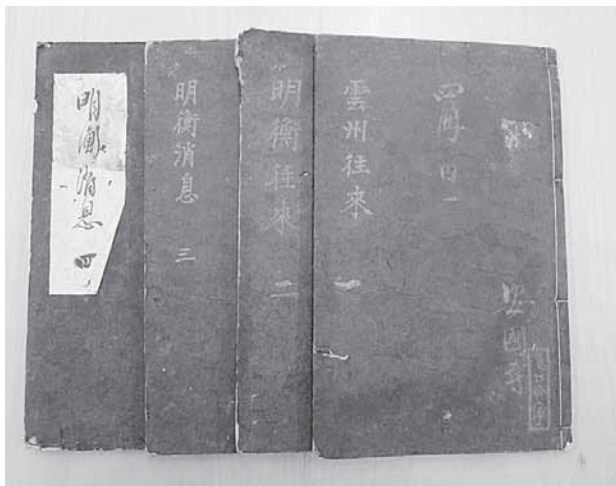 四冊内一
雲州往來 一
明衡往来 二
明衡消息 三
明衡消息 四